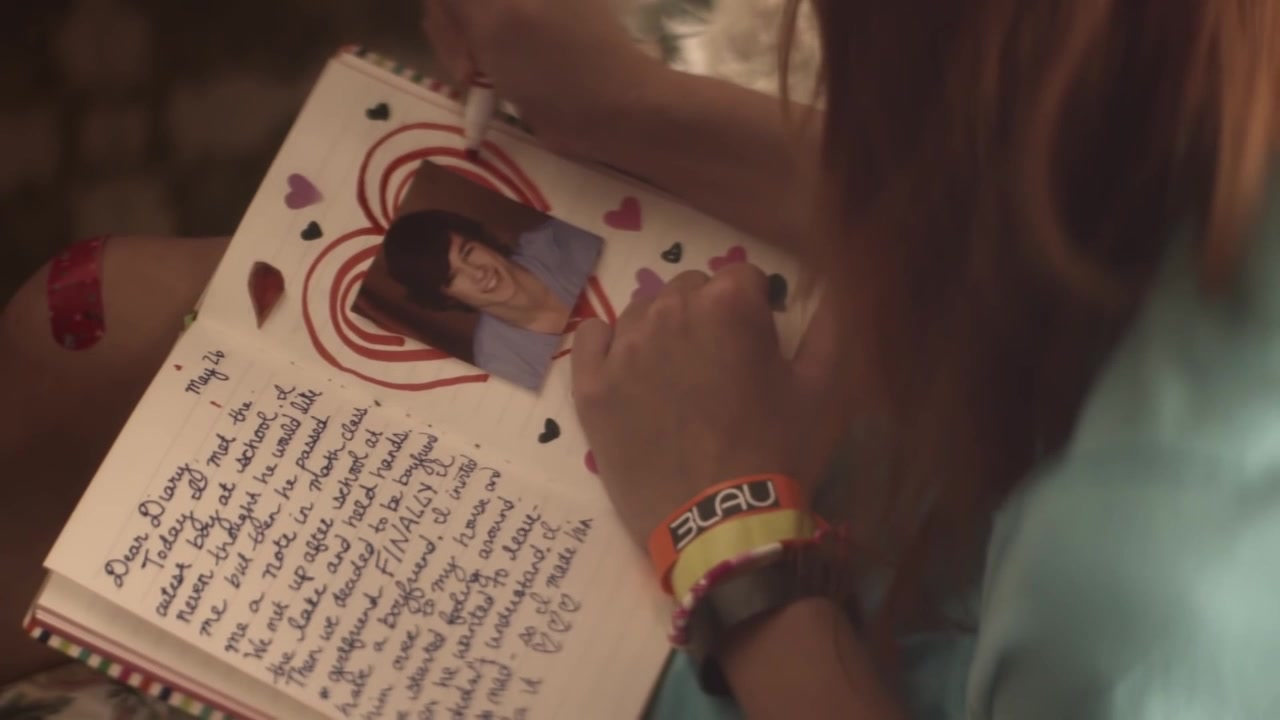 May 26
Dear Diary
Today I met the
cutest boy at school. I
never thought he would like
me but then he passed
me a note in math class
We met up after school at
the lake and held hands.
Then we decided to be boyfriend
girlfriend FINALLY I
have a boyfriend. I invited
him over to my house and
we started fooling around
he wanted to leave.
didn't understand. I
mad. I made him
3LAU